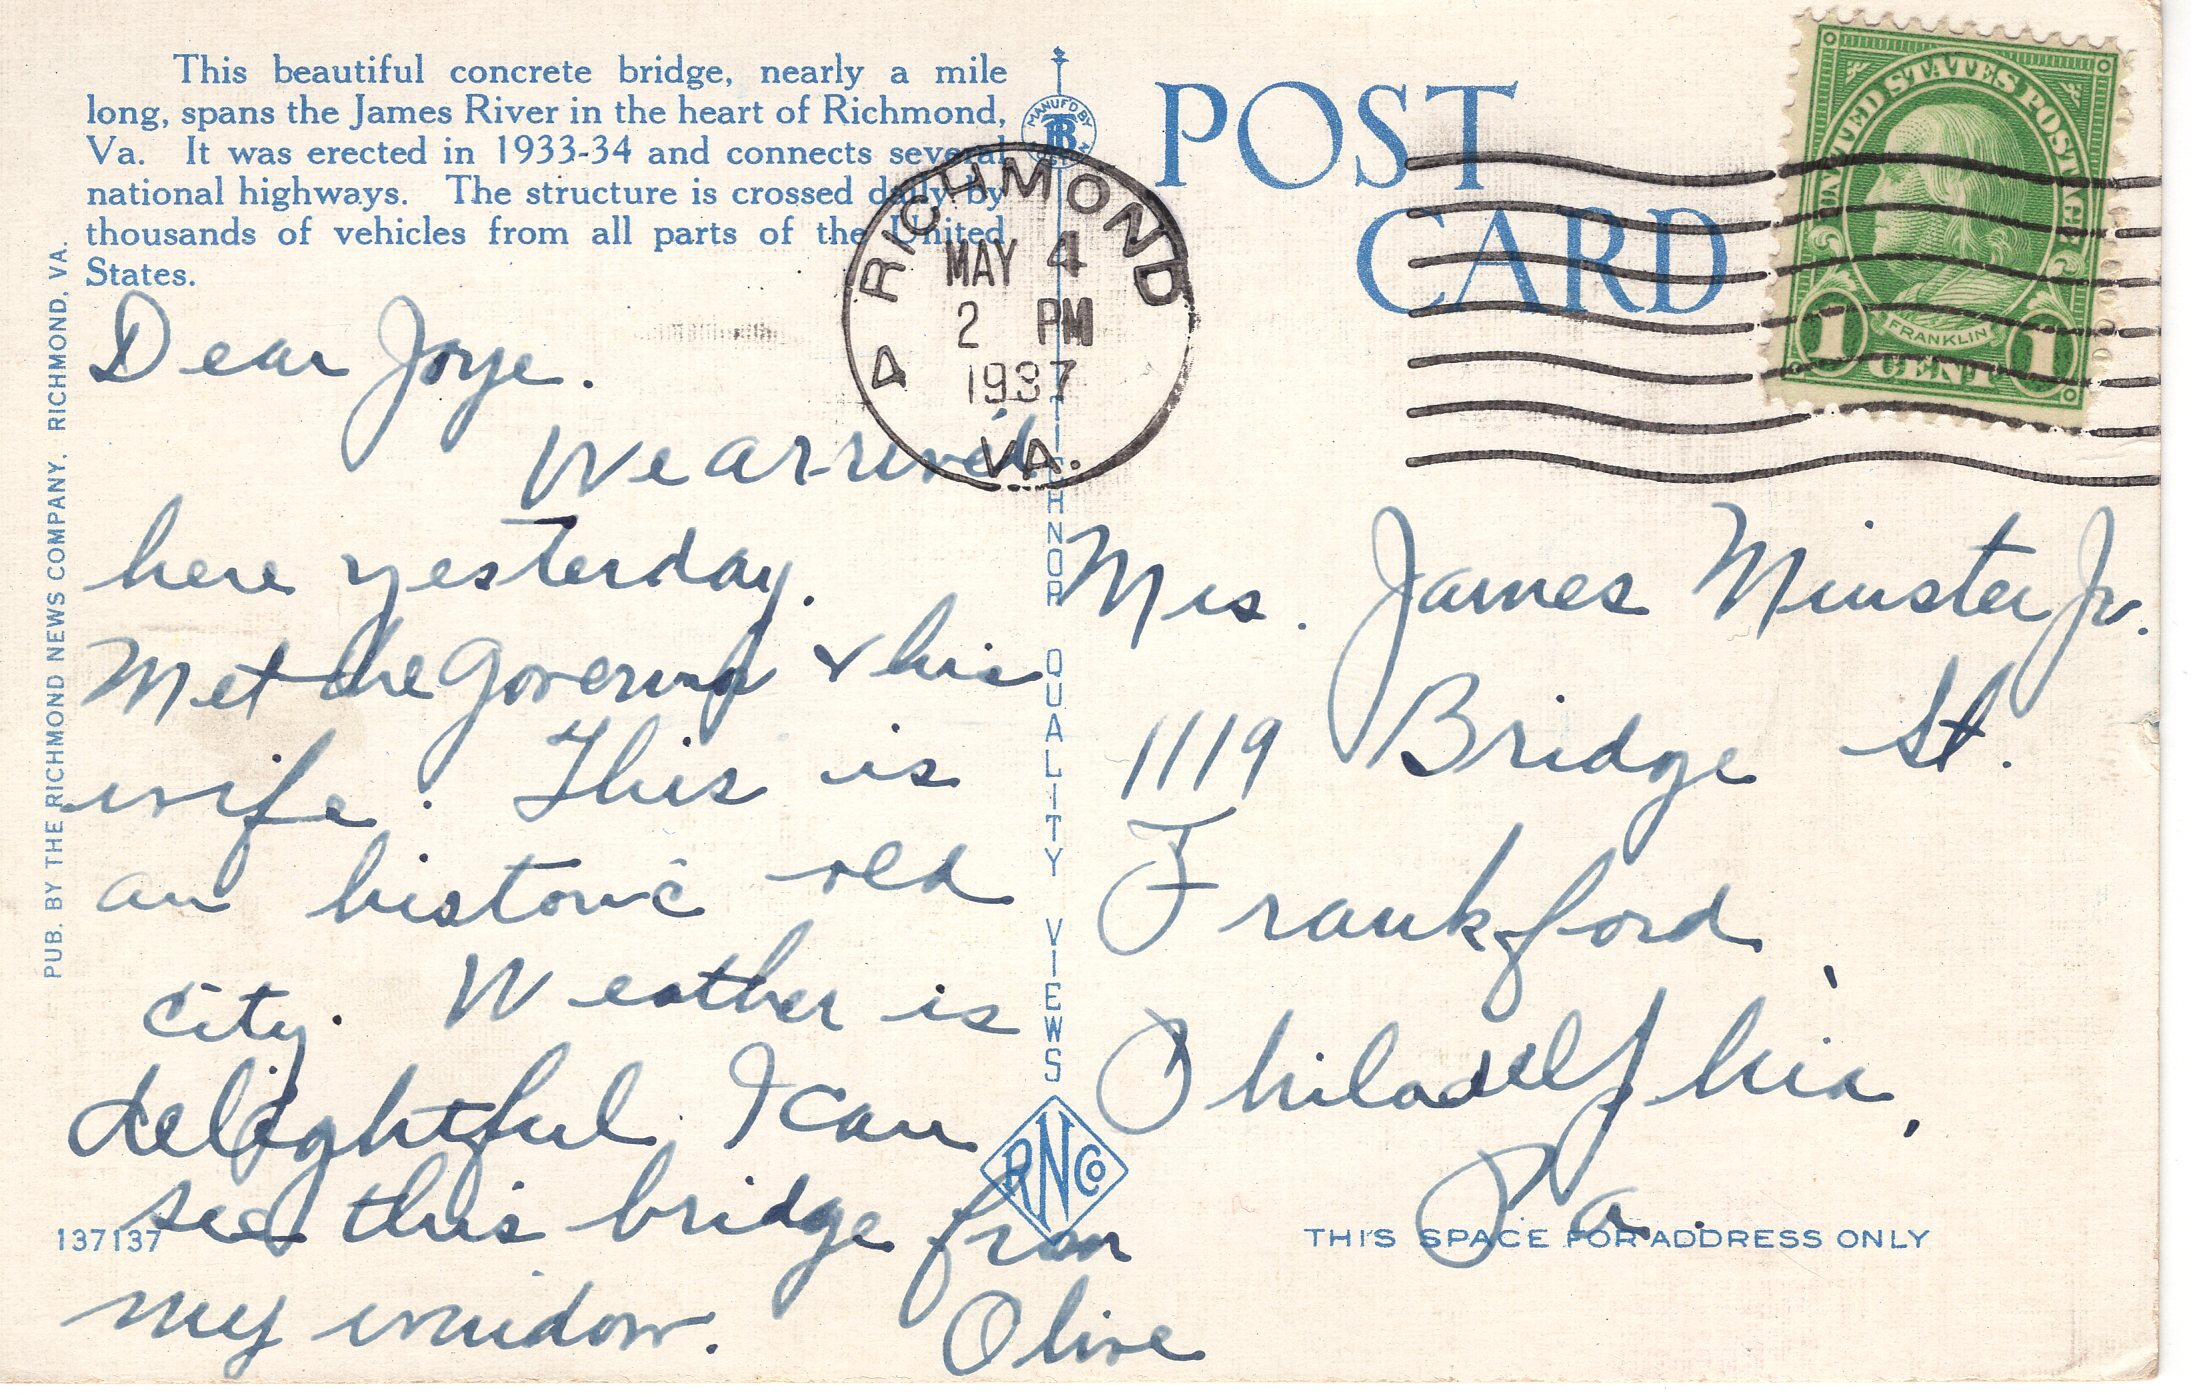 This beautiful concrete bridge, nearly a mile
long, spans the James River in the heart of Richmond,
Va. It was erected in 1933-34 and connects several
national highways. The structure is crossed daily by
thousands of vehicles from all parts of the United
States.
PUB. BY THE RICHMOND NEWS COMPANY. RICHMOND, VA.
Dear Joye.
We arrived
here yesterday.
Met the Governor & his
wife. This is
an historic old
city. Weather is
delightful. I can
see this bridge from
my window.
Olive
137137
MANUF'D BY
TICHNOR QUALITY VIEWS
RNCo
POST
CARD
RICHMOND
MAY 4
2 PM
1937
VA.
UNITED STATES POSTAGE
FRANKLIN
1 CENT 1
Mrs. James Minster Jr.
1119 Bridge St.
Frankford,
Philadelphia,
Pa.
THIS SPACE FOR ADDRESS ONLY